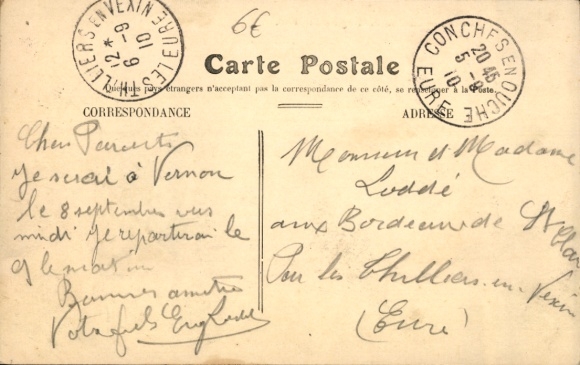 LES THILLIERS EN VEXIN EURE
12* 6-9 10
6€
CONCHES EN OUCHE
20 45
5 -9
10
EURE
Carte Postale
Quelques pays étrangers n'acceptant pas la correspondance de ce côté, se renseigner à la Poste.
CORRESPONDANCE
ADRESSE
Chers Parents
Je serai à Vernon
le 8 septembre vers
midi je repartirai le
9 le matin
Bonnes amitiés
Votre fils Eug Loddé
Monsieur et Madame
Loddé
aux Bordeaux de St Clair
Par les Thilliers-en-Vexin
(Eure)